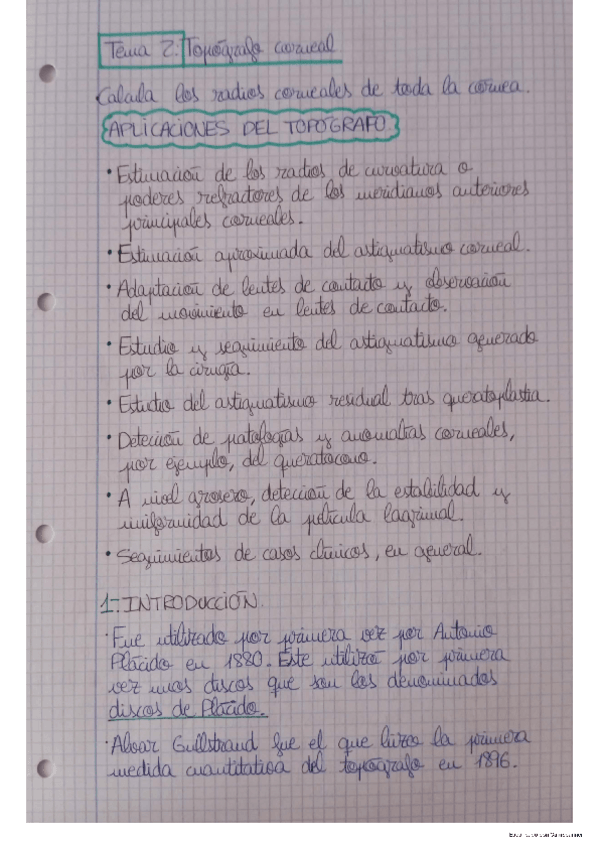 Tema 2: Topógrafo corneal
Calcula los radios corneales de toda la córnea.
APLICACIONES DEL TOPÓGRAFO
• Estimación de los radios de curvatura o
poderes refractores de los meridianos anteriores
principales corneales.
• Estimación aproximada del astigmatismo corneal.
• Adaptación de lentes de contacto y observación
del movimiento en lentes de contacto.
• Estudio y seguimiento del astigmatismo generado
por la cirugía.
• Estudio del astigmatismo residual tras queratoplastia.
• Detección de patologías y anomalías corneales,
por ejemplo, del queratocono.
• A nivel grosero, detección de la estabilidad y
uniformidad de la película lagrimal.
• Seguimientos de casos clínicos, en general.
1-. INTRODUCCIÓN.
· Fue utilizado por primera vez por Antonio
Plácido en 1880. Este utilizó por primera
vez unos discos que son los denominados
discos de Plácido.
· Alvar Gullstrand fue el que hizo la primera
medida cuantitativa del topógrafo en 1896.